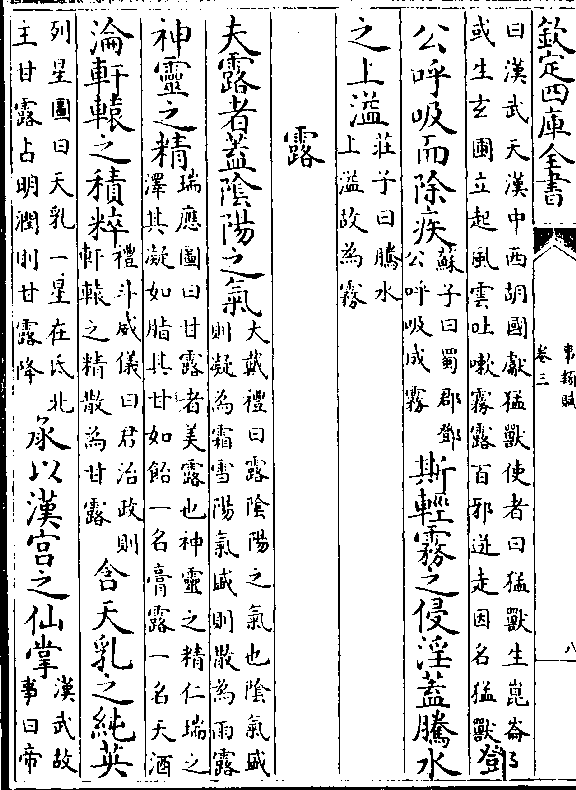 欽定四庫全書
事類賦
卷三
八
曰漢武天漢中西胡國獻猛獸使者曰猛獸生崑崙
或生玄圃立起風雲吐嗽霧露百邪迸走因名猛獸
鄧
公呼吸而除疾
蘇子曰蜀郡鄧
公呼吸成霧
斯輕霧之侵淫蓋騰水
之上溢
莊子曰騰水
上溢故為霧
露
夫露者蓋陰陽之氣
大戴禮曰露陰陽之氣也陰氣盛
則凝為霜雪陽氣盛則散為雨露
神靈之精
瑞應圖曰甘露者美露也神靈之精仁瑞之
澤其凝如脂其甘如飴一名膏露一名天酒
淪軒轅之積粹
禮斗威儀曰君治政則
軒轅之精散為甘露
含天乳之純英
列星圖曰天乳一星在氐北
主甘露占明潤則甘露降
承以漢宫之仙掌
漢武故
事曰帝